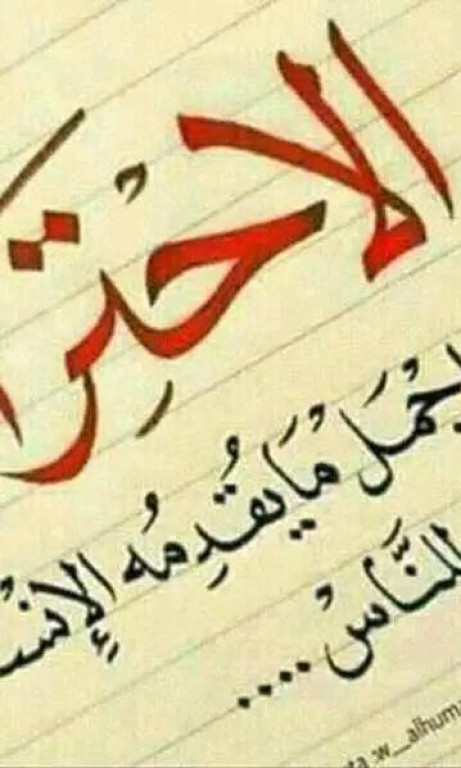 الاحْتِرا
اجْمَل مَا يُقْدِمُه الإنسْ
للنَّاسْ ....
ta.w_alhuma